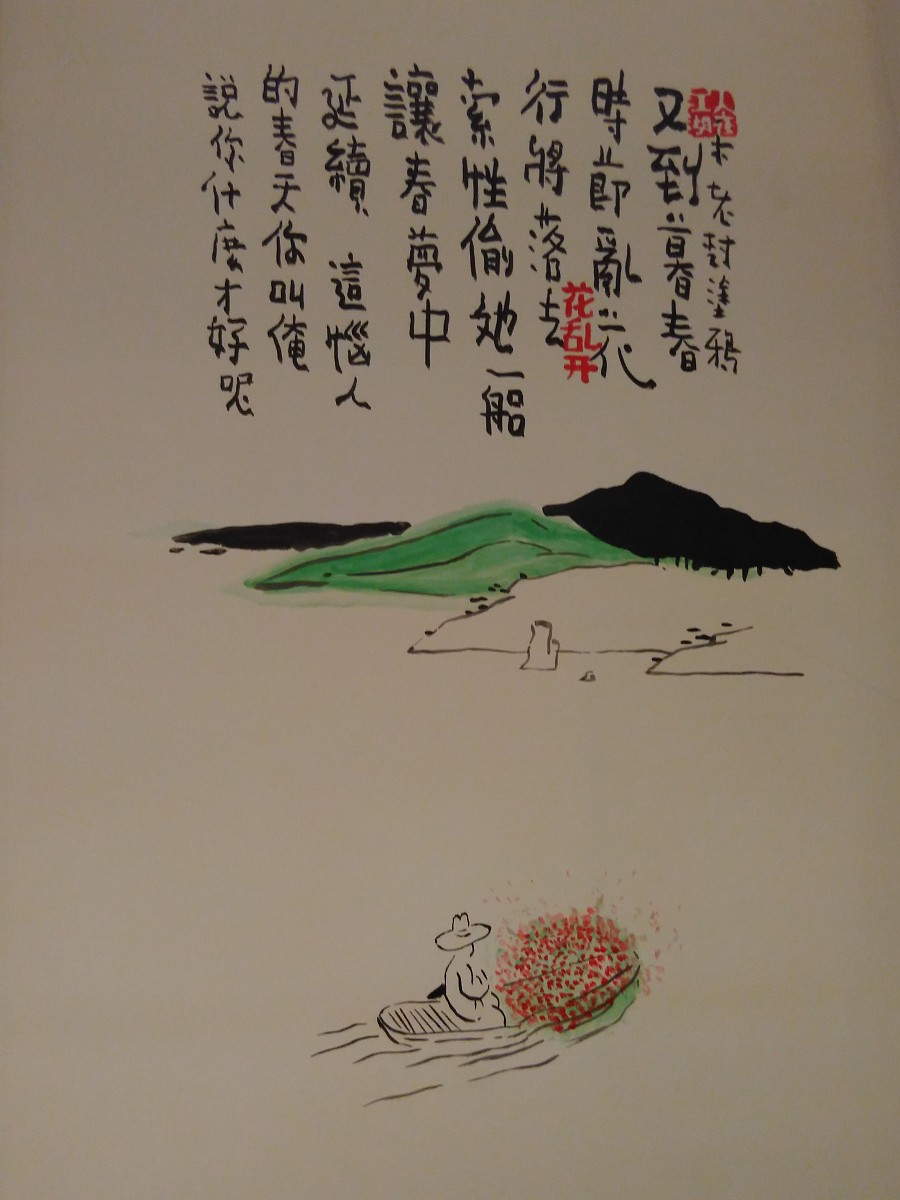 老封塗鴉
又到暮春春
時節亂花
花乱开
行將落去
索性偷她一船
讓春夢中
延續 這惱人
的春天你叫俺
説你什庅才好呢